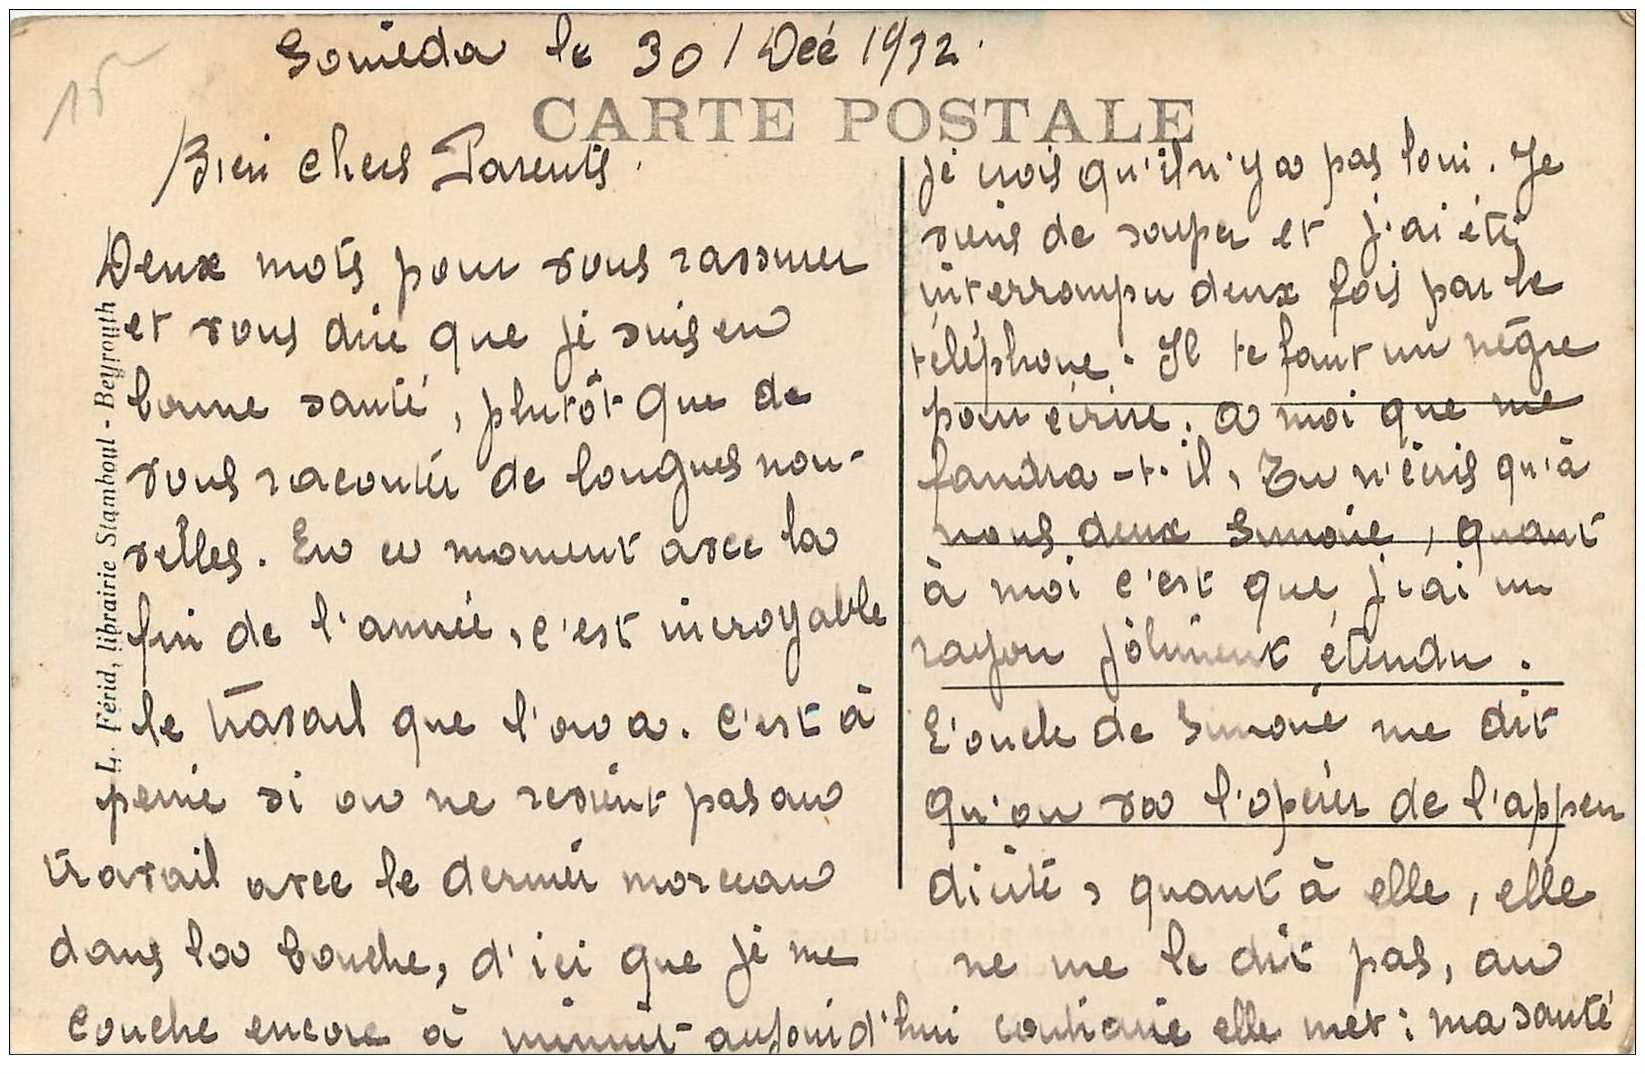 15
Soueida le 30 / Déc 1932.
CARTE POSTALE
Bien chers Parents.
Deux mots pour vous rassurer
et vous dire que je suis en
bonne santé, plutôt que de
vous raconter de longues nou-
velles. En ce moment avec la
fin de l'année, c'est incroyable
le travail que l'on a. C'est à
peine si on ne revient pas au
travail avec le dernier morceau
dans la bouche, d'ici que je me
couche encore à minuit aujourd'hui
je crois qu'il n'y a pas loin. Je
viens de souper et j'ai été
interrompu deux fois par le
téléphone. Il te faut un nègre
pour écrire. a moi que me
faudra-t-il, Tu n'écris qu'à
nous deux Simone, quant
à moi c'est que j'ai un
rayon joliment étendu.
L'oncle de Simone me dit
qu'on va l'opérer de l'appen
dicite, quant à elle, elle
ne me le dit pas, au
contraire elle met : ma santé
L. Férid, librairie Stamboul - Beyrouth